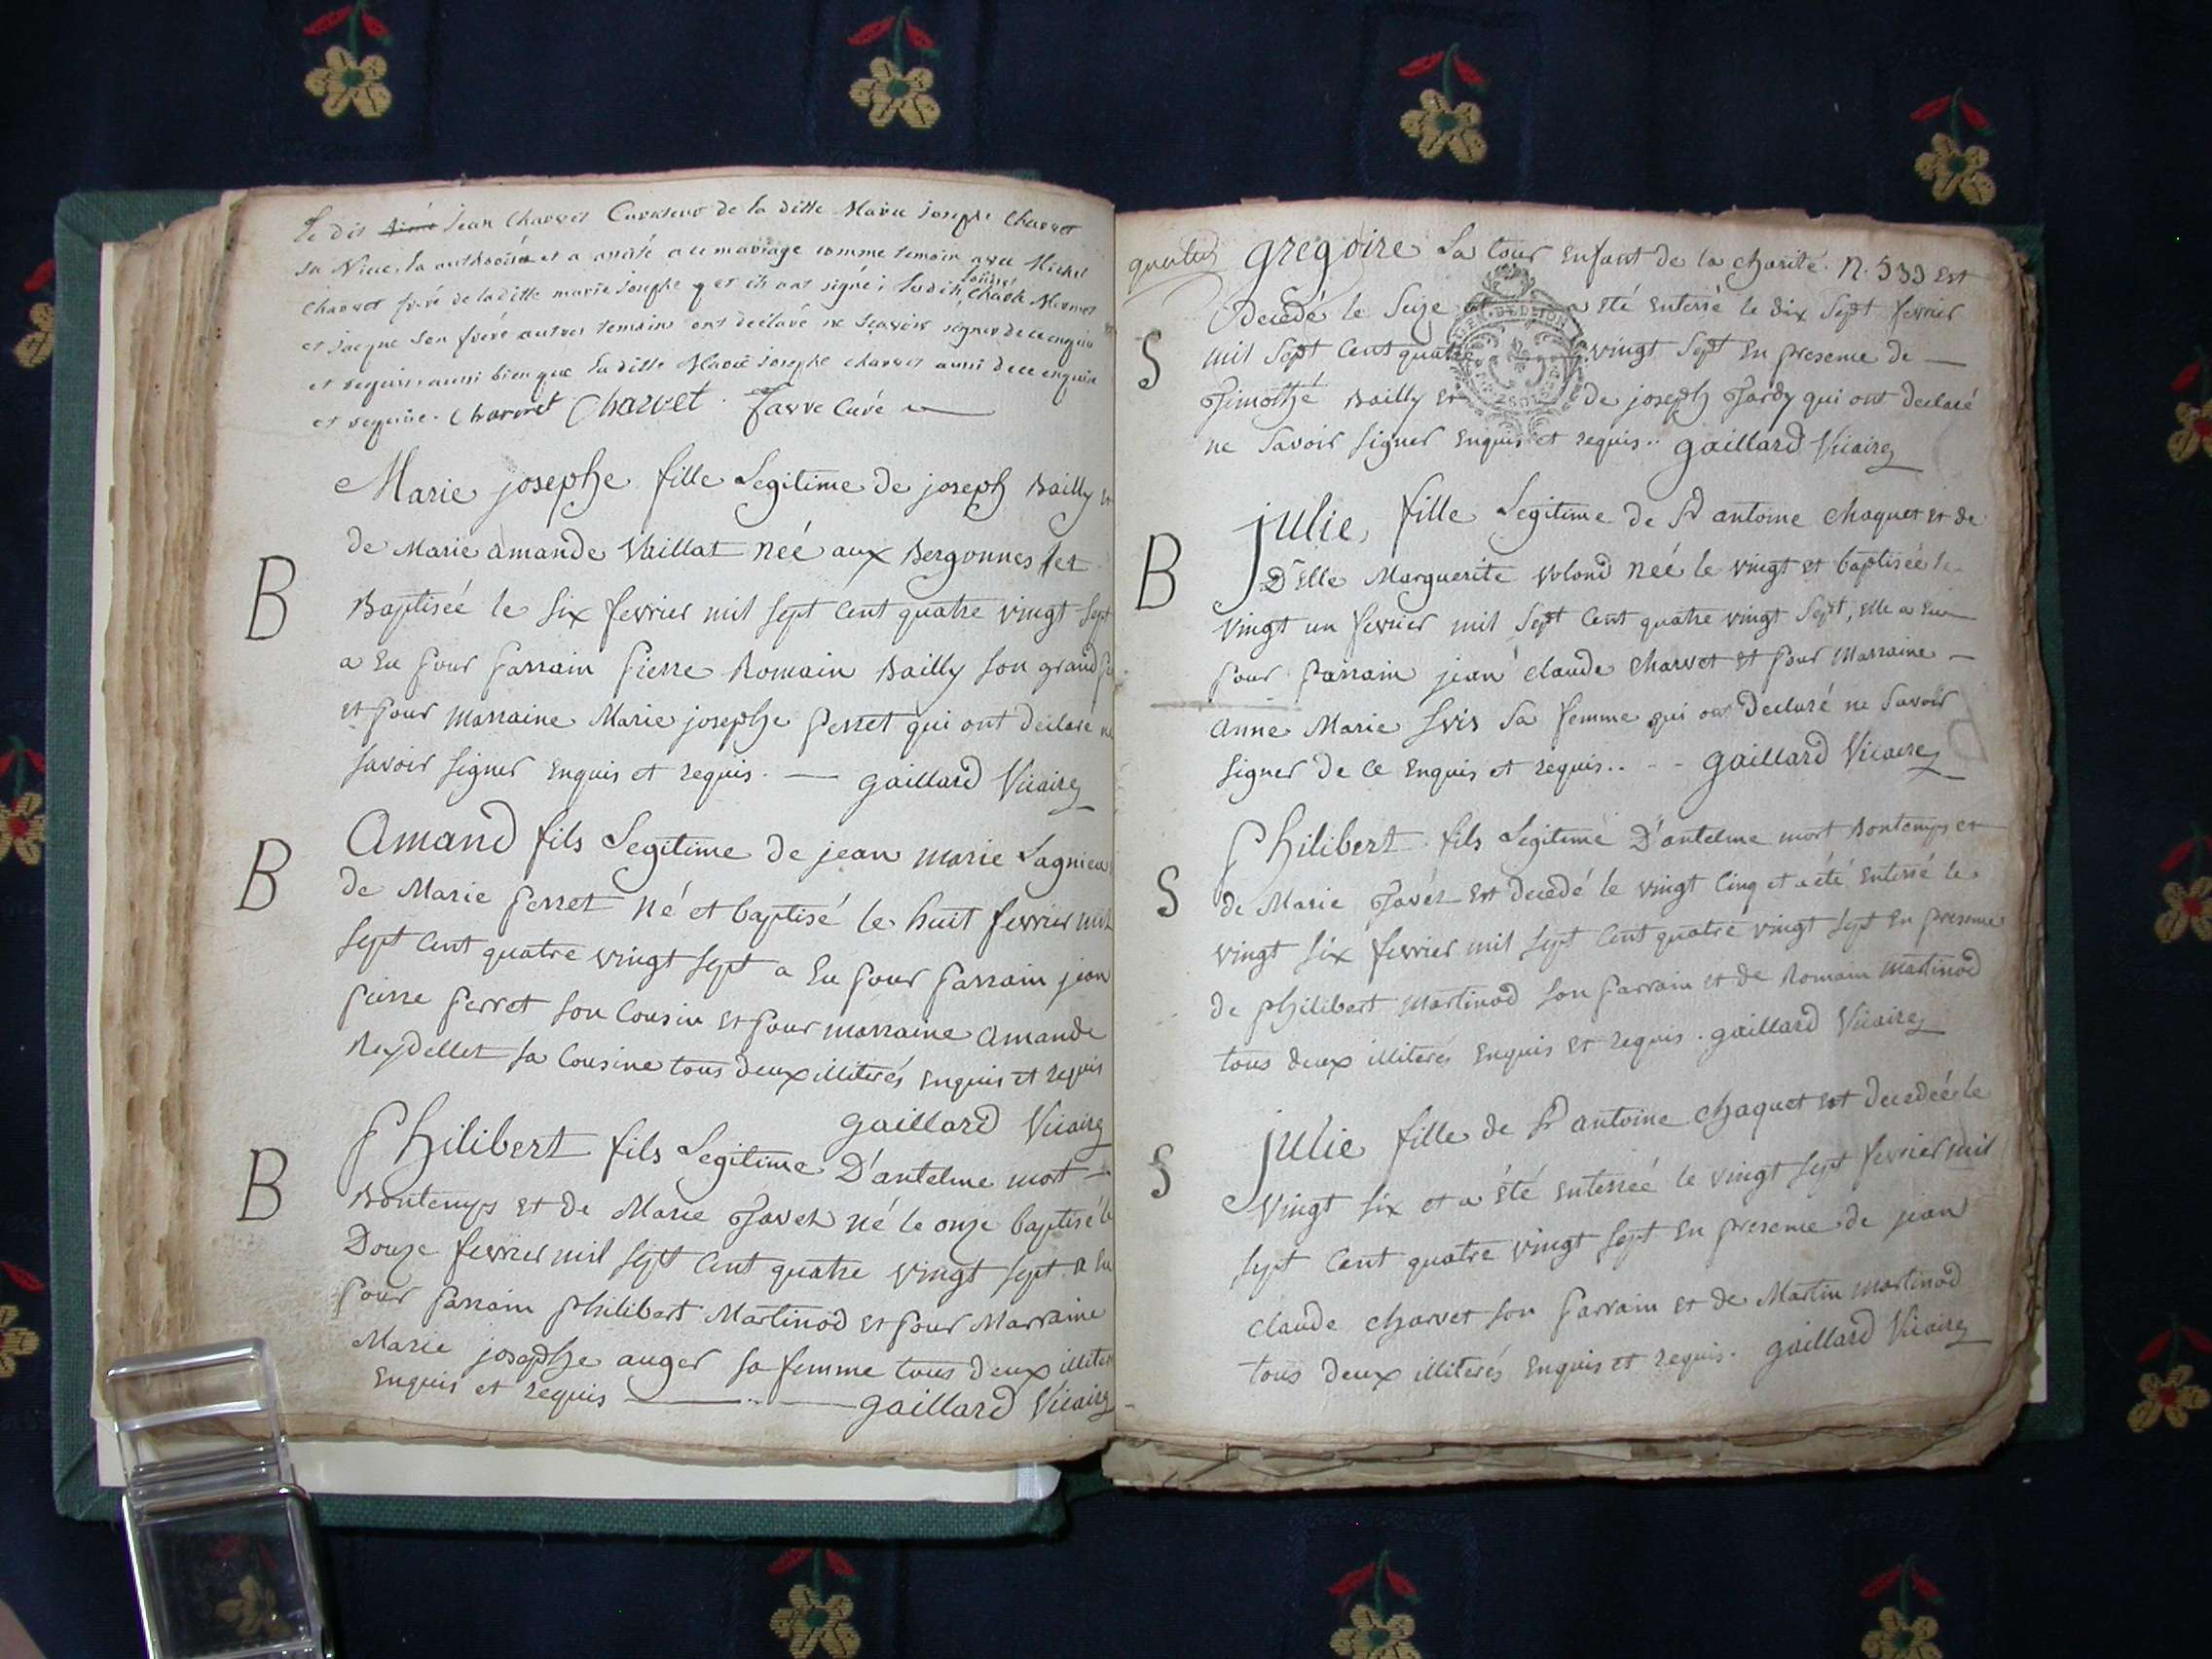 Le dit Jean Charvet Curateur de la ditte Marie Josephe Charvet
sa Niece, la authorisée et a assisté a ce mariage comme temoin avec Michel
Charvet frere de la ditte marie Josephe et ils ont signé; Ledit
et jacque son frere autres temoins ont declaré ne scavoir signer de ce enquis
et requis aussi bien que la ditte Marie josephe charvet aussi de ce enquise
et requise. Charvet Charvet favre Curé
Marie josephe fille Legitime de joseph Bailly et
B
de Marie amande Vuillat Neé aux Bergonnes et
Baptiseé le six fevrier mil sept Cent quatre vingt sept
a Eu pour parrain pierre Romain Bailly son grand
et pour marraine Marie josephe perret qui ont declare
savoir signer Enquis et requis. gaillard Vicaire
Amand fils Legitime de jean marie Lagnieu
B
de Marie perret né et baptisé le huit fevrier mil
sept Cent quatre vingt sept a Eu pour parrain jean
pierre perret son Cousin et pour marraine amande
Reydellet sa Cousine tous deux illiterés Enquis et requis
gaillard Vicaire
Philibert fils Legitime D'antelme mort
B
Bontemps et de Marie Javet né le onze baptisé le
Douze fevrier mil sept Cent quatre vingt sept a Eu
pour parrain philibert Martinod et pour Marraine
Marie josephe auger sa femme tous deux illiter
Enquis et requis gaillard Vicaire
gregoire La tour Enfant de la charité. N. 539 Est
Decedé le Seize et a eté Enterré le dix sept fevrier
S
mil sept Cent quatre vingt sept En presence de
Timothé Bailly et de joseph Tardy qui ont declaré
ne savoir signer Enquis et requis.. gaillard Vicaire
julie, fille Legitime de Sr antoine chaquet et de
B
Dlle Marguerite volond Neé le vingt et baptiseé le
vingt un fevrier mil sept Cent quatre vingt sept, elle a Eu
pour parrain jean claude charvet et pour Marraine
anne Marie sa femme qui ont Declaré ne savoir
signer de ce Enquis et requis.. gaillard Vicaire
Philibert fils Legitime D'antelme mort Bontemps et
S
de Marie Javet Est Decedé le vingt Cinq et a eté Enterré le
vingt six fevrier mil sept Cent quatre vingt sept En presence
de philibert Martinod son parrain et de Romain Martinod
tous deux illiterés Enquis et requis. gaillard Vicaire
julie fille de Sr antoine chaquet Est Decedeé le
S
vingt six et a eté Enterreé le vingt sept fevrier mil
sept Cent quatre vingt sept En presence de jean
claude charvet son parrain et de Martin Martinod
tous deux illiterés Enquis et requis. gaillard Vicaire